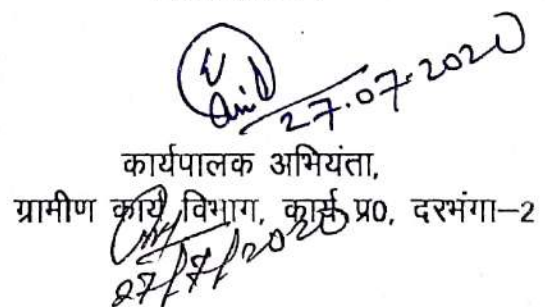 27.07.2020
कार्यपालक अभियंता,
ग्रामीण कार्य विभाग, कार्य प्र0, दरभंगा–2
27/7/2020